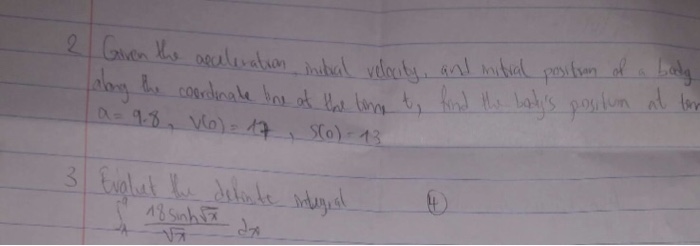 2 Given the acceleration, initial velocity, and initial position of a body
along the coordinate line at the time t, find the body's position at
a = 9.8, v(0) = 17, s(0) = 13
3 Evaluet the definite integral ④
∫ 18 sinh√x / √x dx